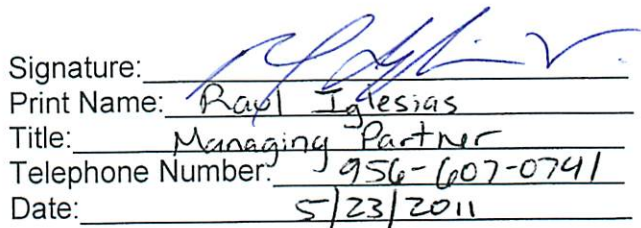 Signature:
Print Name: Raul Iglesias
Title: Managing Partner
Telephone Number: 956-607-0741
Date: 5/23/2011